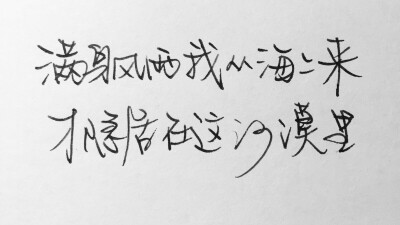 满身风雨我从海上来
才隐居在这沙漠里